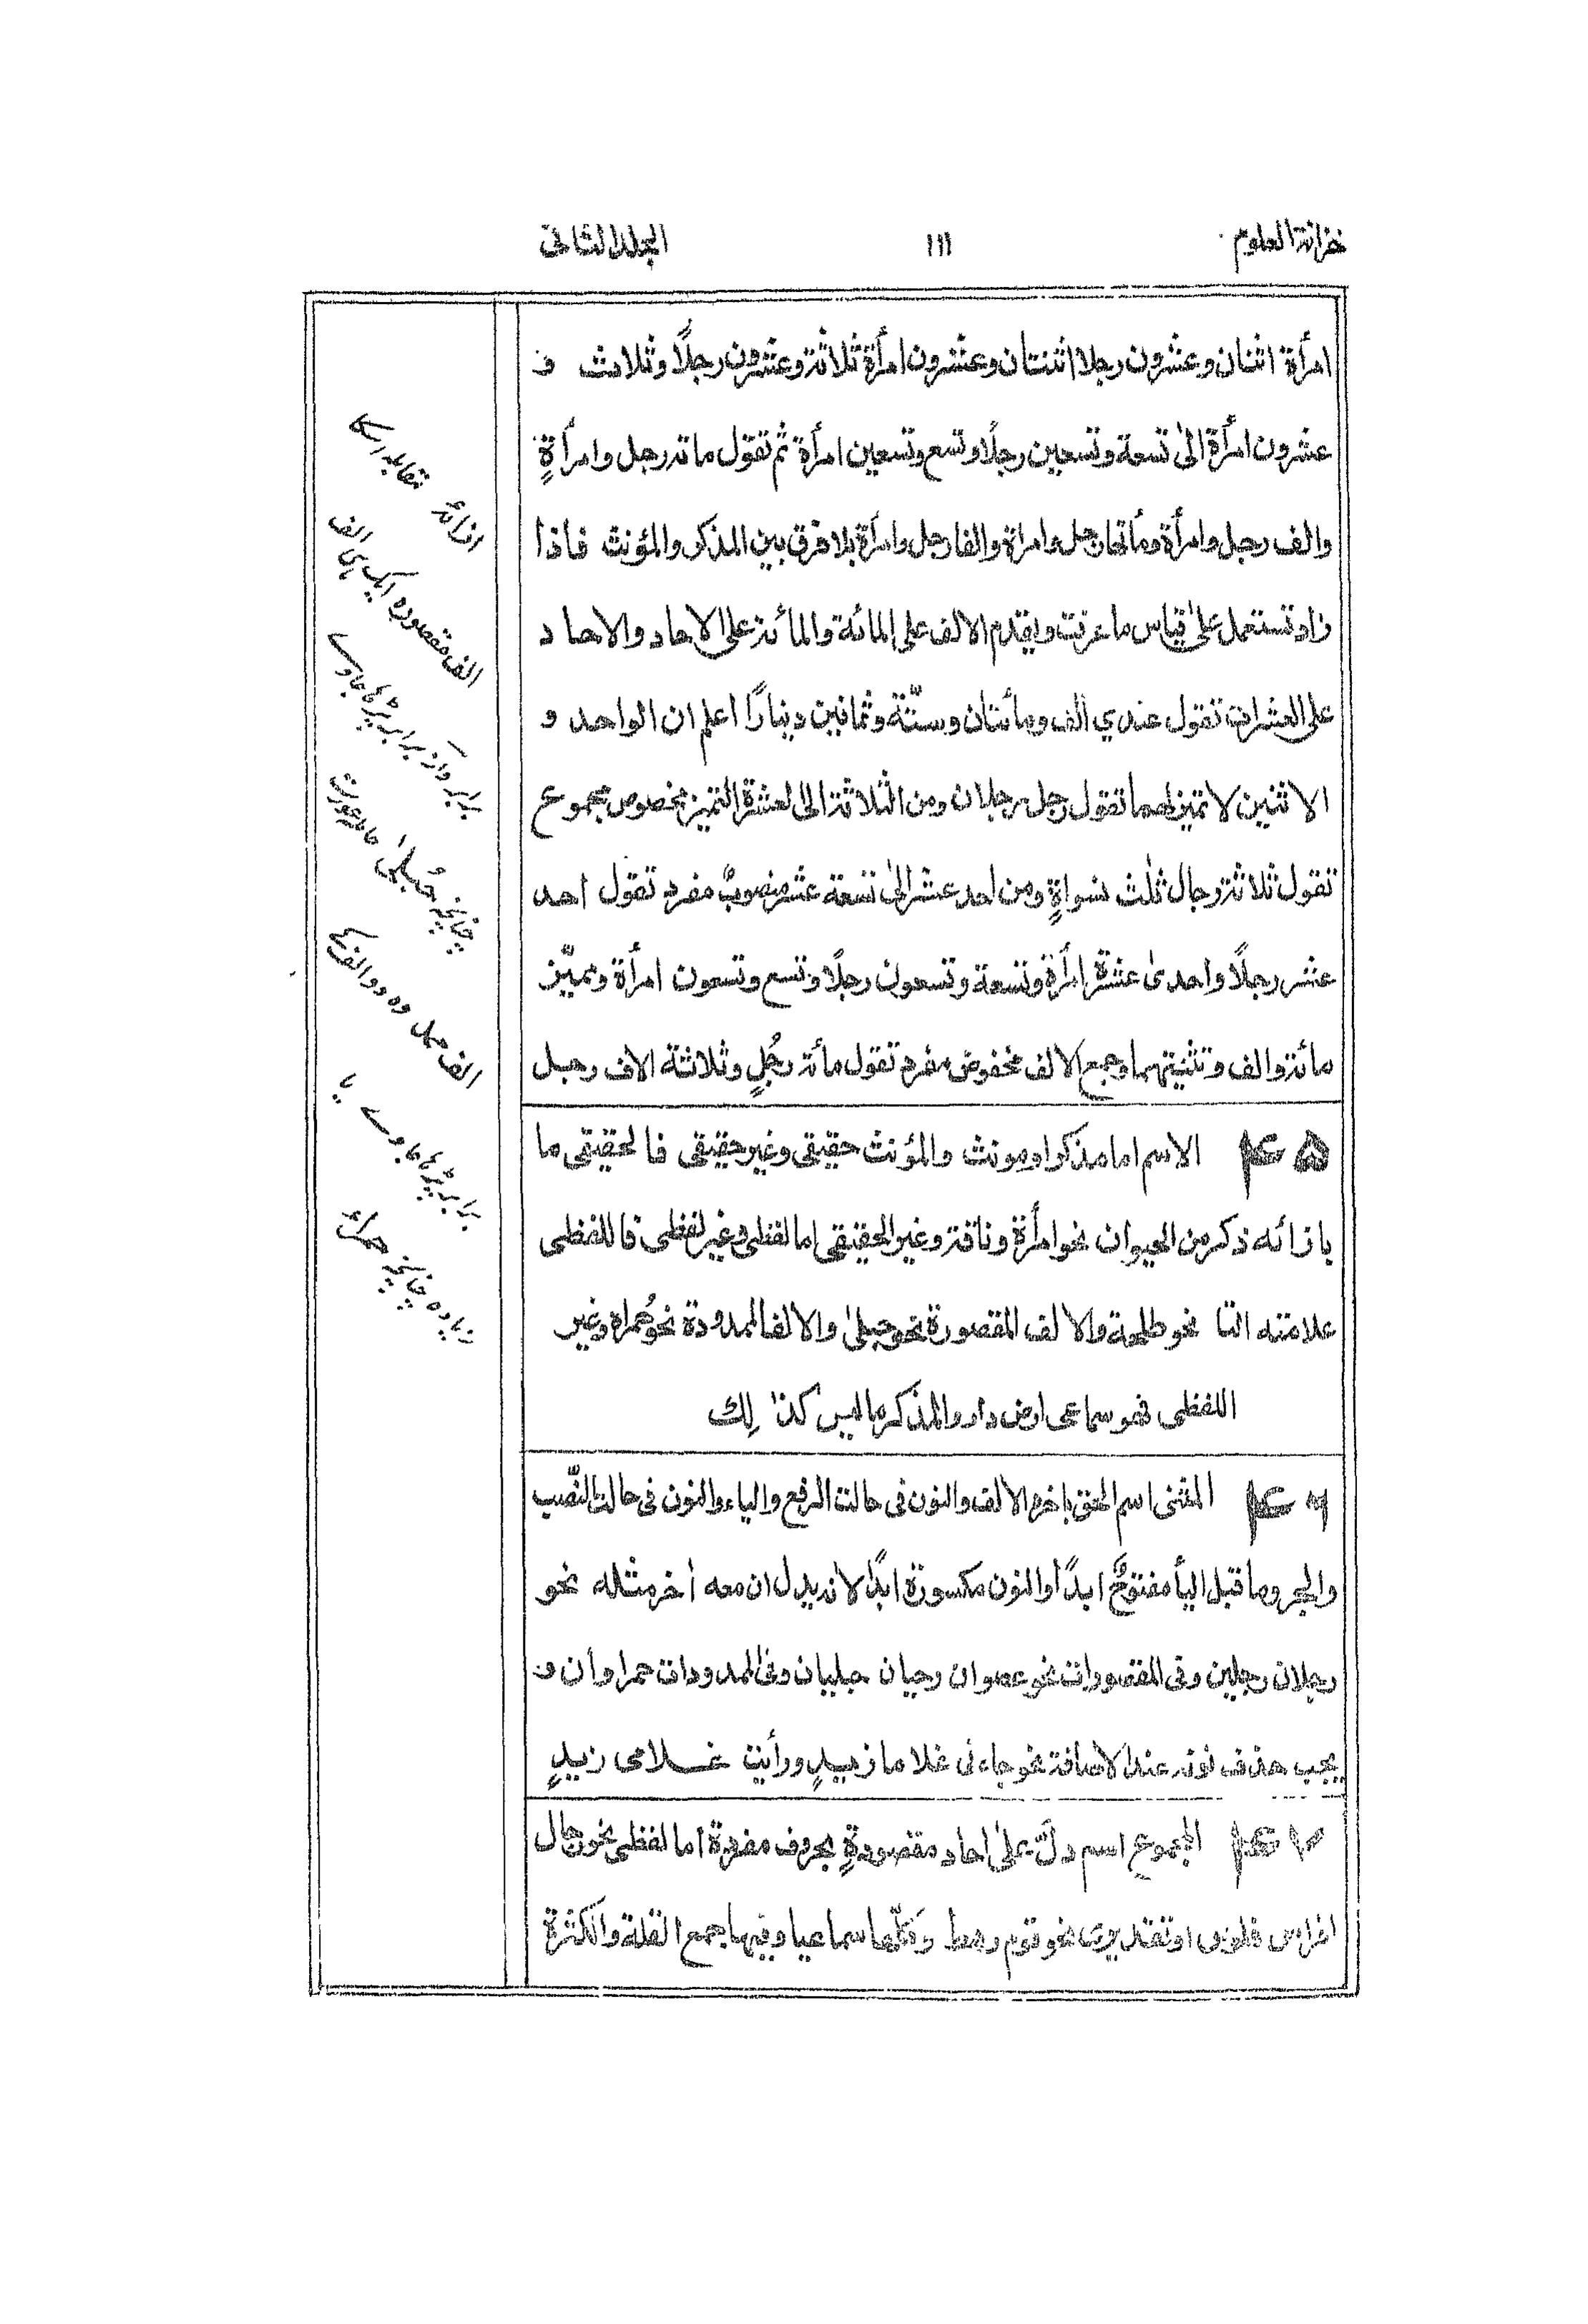 خزانة العلوم ۱۱۱ الجلد الثانی
امرأة اثنان وعشرون رجلا اثنتان وعشرون امرأة ثلاثة وعشرون رجلًا وثلاث و
عشرون امرأة الیٰ تسعة وتسعین رجلًا وتسع وتسعین امرأة ثم تقول مائة رجل وامرأةٍ
والف رجل وامرأة ومأتا رجل وامراة والفا رجل وامرأة بلا فرق بین المذکر والمؤنث فاذا
زاد تستعمل علیٰ قیاس ما عرفت ویقدم الالف علی المائة والمائة علی الاحاد والاحاد
علی العشرات تقول عندي الف ومائتان وستّة وثمانین دینارًا اعلم ان الواحد و
الاثنین لا تمیز لهما تقول رجل رجلان ومن الثلاثة الی العشرة التمیز مخفوض مجموع
تقول ثلاثة رجال ثلث نسواةٍ ومن احد عشر الیٰ تسعة عشر منصوبٌ مفرد تقول احد
عشر رجلًا واحدیٰ عشرة امرأة وتسعة وتسعون رجلًا وتسع وتسعون امرأة وممیّز
مائة والف وتثنیتهما وجمع الالف مخفوض مفرد تقول مأئة رجُلٍ وثلاثة الاف رجل
الاسم اما مذکر او مونث والمؤنث حقیقی وغیر حقیقی فالحقیقی ما
بازائه ذکر من الحیوان نحو امرأة وناقة وغیر الحقیقی اما لفظی وغیر لفظی فاللفظی
علامته التا نحو طلحة والالف المقصورة نحو حبلیٰ والالف الممدودة نحو حمراء وغیر
اللفظی فهو سماعی ارض دار والمذکر ما لیس کذا لِك
المثنی اسم الحق باخره الالف والنون فی حالت الرفع والیاء والنون فی حالت النّصب
والجر وما قبل الیأ مفتوحٌ ابدًا والنون مکسورة ابدًا لانه یدل ان معه اٰخر مثله نحو
رجلان رجلین وفی المقصورات نحو عصوان رحیان حبلیان وفی الممدودات حمراوان و
یجب حذف نونه عند الاضافة نحو جاءنی غلاما زیدٍ ورأیت غلامی زیدٍ
المجموع اسم دلّ علیٰ احاد مقصودةٍ بحروف مفردة اما لفظی نحو رجال
افراس فلوس او تقدیری نحو قوم رهط وکلّها سماعیا وفیها جمع القلة والکثرة
بمقابلہ اسکے
ازائہ
الف مقصورہ ایک ہی الف
برابر آواز برابر پڑھا جاوے
چنانچہ حُبلیٰ حاملہ عورت
الف ممد وہ دو الف کے
برابر پڑھا جاوے یا
زیادہ چنانچہ حمراء